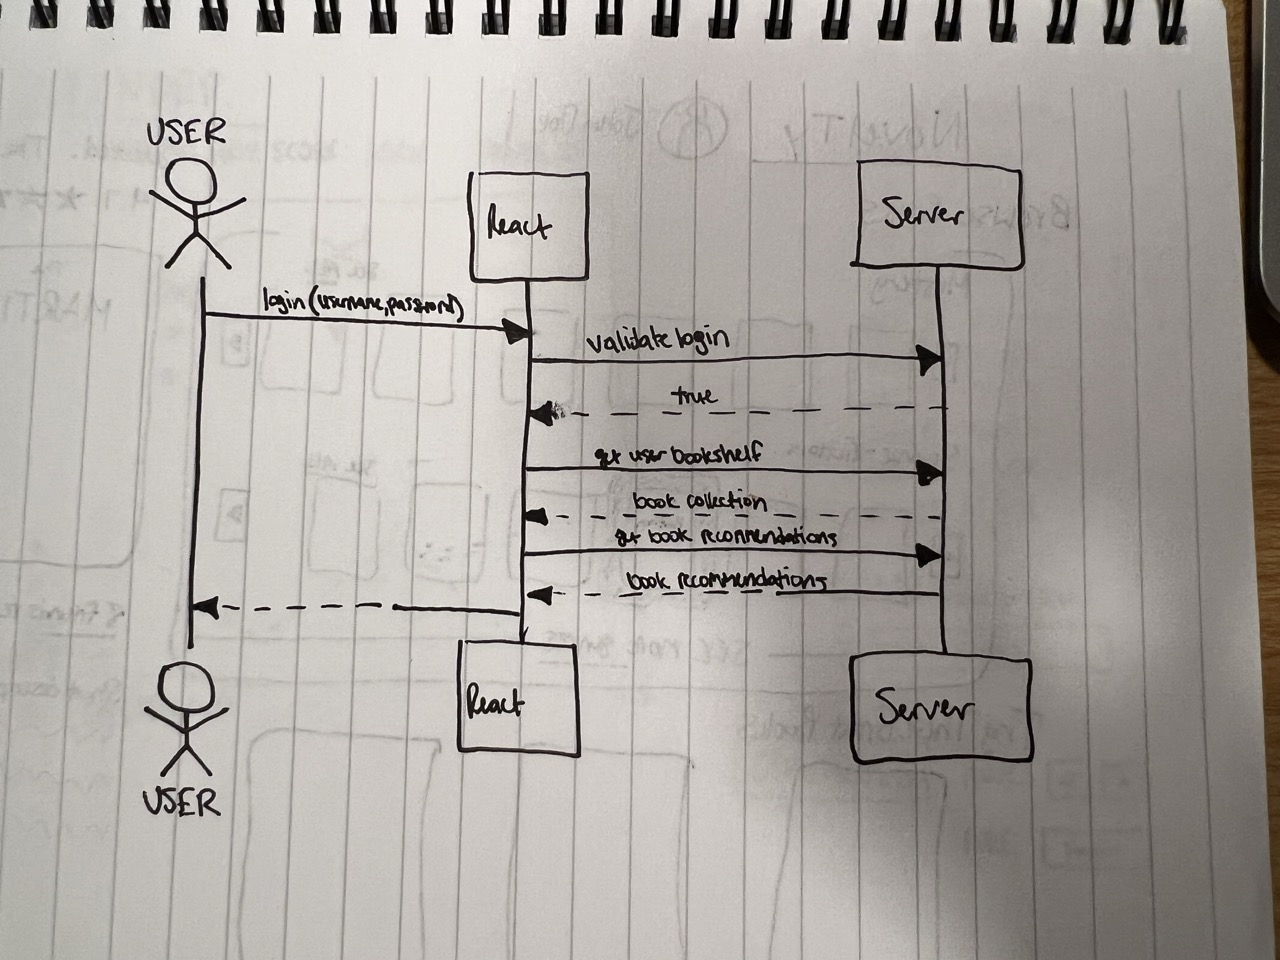 USER
React
Server
login(username,password)
validate login
true
get user bookshelf
book collection
get book recommendations
book recommendations
React
Server
USER